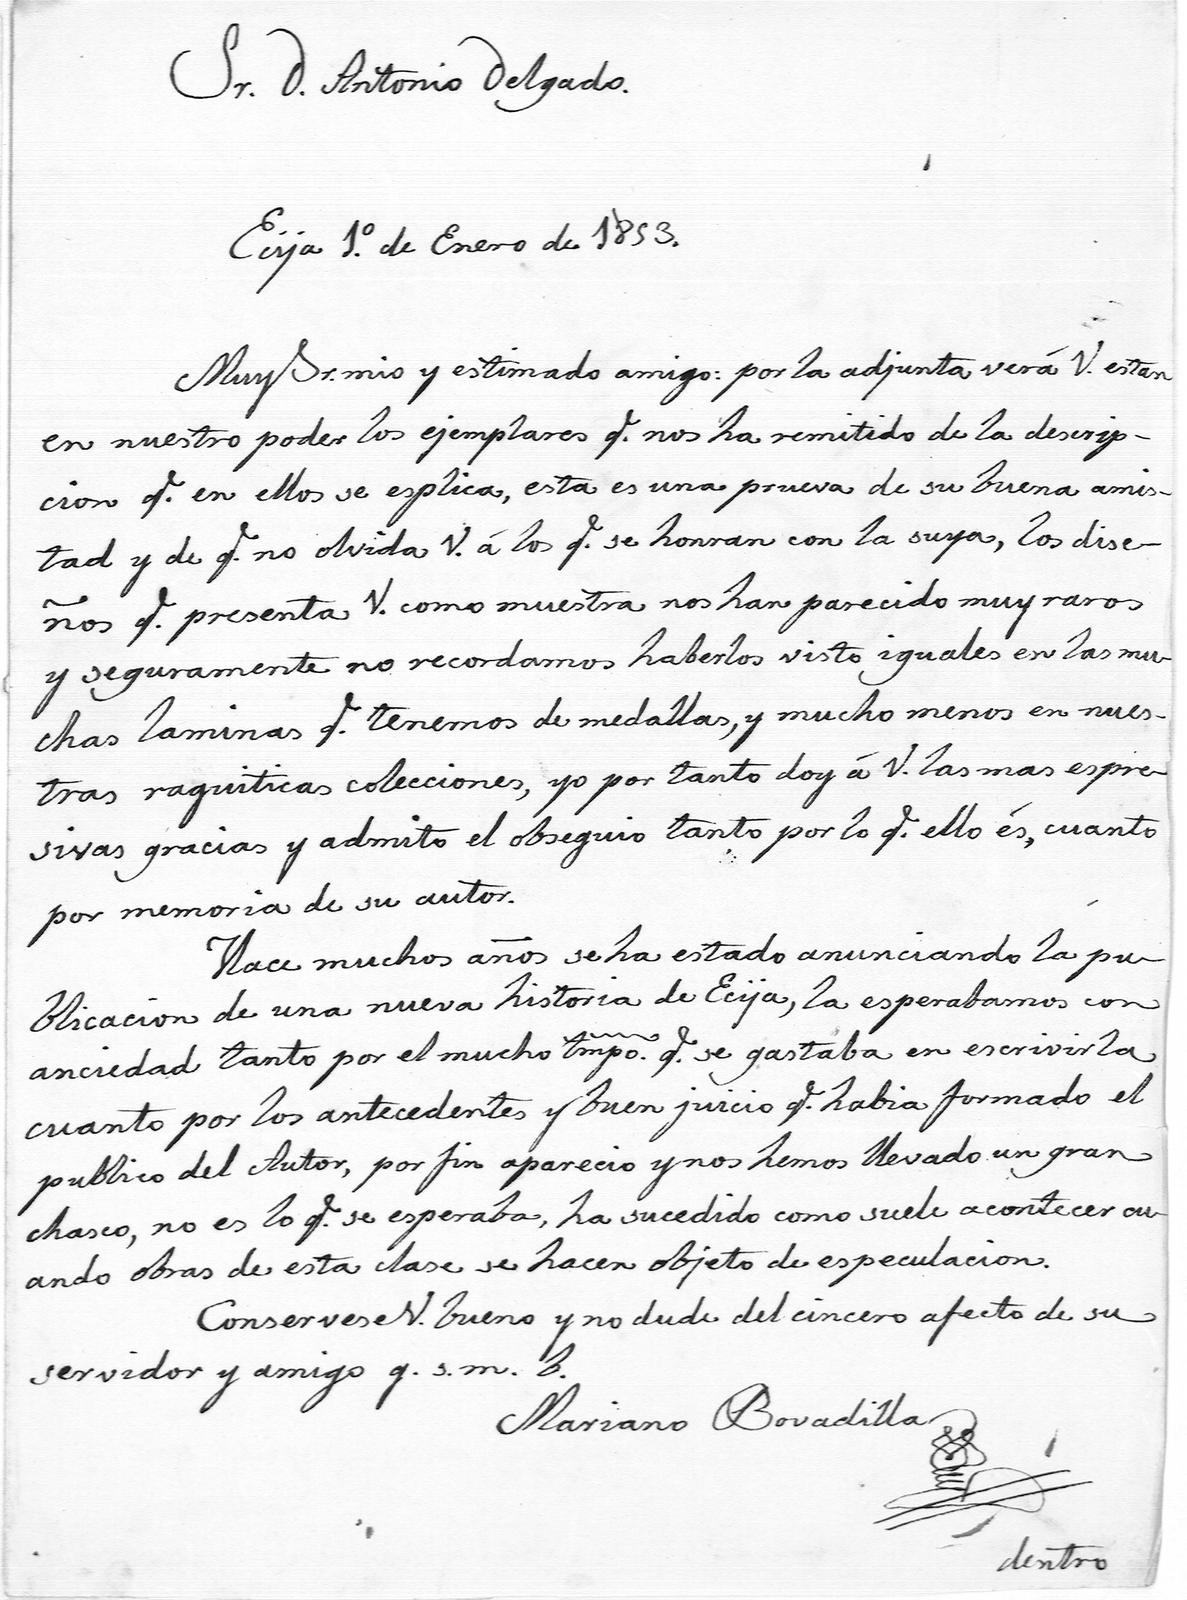 Sr. D. Antonio Delgado.
Ecija 1º. de Enero de 1853.
Muy Sr. mio y estimado amigo: por la adjunta verá V. estan
en nuestro poder los ejemplares q. nos ha remitido de la descrip-
cion q. en ellos se esplica, esta es una prueva de su buena amis-
tad y de q. no olvida V. á los q. se honran con la suya, los dise-
ños q. presenta V. como muestra nos han parecido muy raros
y seguramente no recordamos haberlos visto iguales en las mu-
chas laminas q. tenemos de medallas, y mucho menos en nues-
tras raquiticas colecciones, yo por tanto doy á V. las mas espre-
sivas gracias y admito el obsequio tanto por lo q. ello és, cuanto
por memoria de su autor.
Hace muchos años se ha estado anunciando la pu-
blicacion de una nueva historia de Ecija, la esperabamos con
anciedad tanto por el mucho tmpo. q. se gastaba en escrivirla
cuanto por los antecedentes y buen juicio q. habia formado el
publico del Autor, por fin aparecio y nos hemos llevado un gran
chasco, no es lo q. se esperaba, ha sucedido como suele acontecer cu-
ando obras de esta clase se hacen objeto de especulacion.
Conservese V. bueno y no dude del cincero afecto de su
servidor y amigo q. s. m. b.
Mariano Bovadilla
dentro